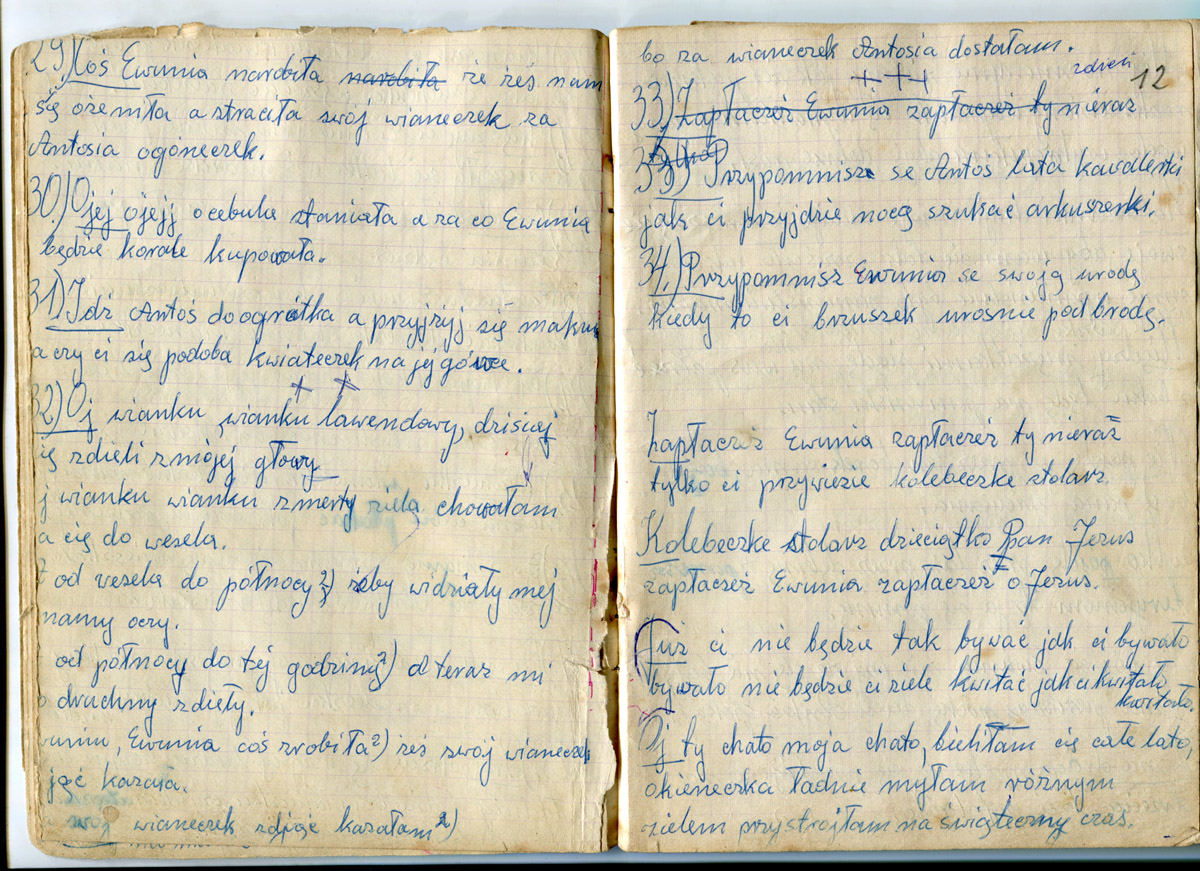 29) Coś Ewunia narobiła narobiła że żeś nam
się ożeniła a straciła swój wianeczek za
Antosia ogóneczek.
30) Ojej ojejj ocebula staniała a za co Ewunia
będzie korale kupowała.
31) Idź Antoś do ogrótka a przyjżyj się maku
a czy ci się podoba kwiateczek na jej górce.
32) Oj wianku, wianku lawendowy, dzisiaj
się zdieli zmójej głowy
j wianku wianku zmerty zielą chowałam
a cię do wesela.
od wesela do północy 2) żeby widziały mej
mamy oczy.
od północy do tej godziny 2) a teraz mi
druchny zdieły.
Ewunia coś zrobiła 2) żeś swój wianeczek
jąć kazała.
swój wianeczek zdjąć kazałam 2)
bo za wianeczek Antosia dostałam.
12
33) Zapłaczesz Ewunia zapłaczesz ty nieraz
tylko
33) Przypomnisz se Antoś lata kawalerki
jak ci przyjdzie nocą szukać arkuszerki.
34.) Przypomnisz Ewunia se swoją urodę
Kiedy to ci brzuszek urośnie pod brodę.
Zapłaczesz Ewunia zapłaczesz ty nieraz
tylko ci przywiezie kolebeczke stolarz.
Kolebeczke stolarz dzieciątko Pan Jezus
zapłaczesz Ewunia zapłaczesz o Jezus.
Już ci nie będzie tak bywać jak ci bywało
bywało nie będzie ci ziele kwitać jak ci kwitało
kwitało.
Oj ty chato moja chato, bieliłam cię całe lato,
okieneczka ładnie myłam różnym
zielem przystrojłam na świąteczny czas.